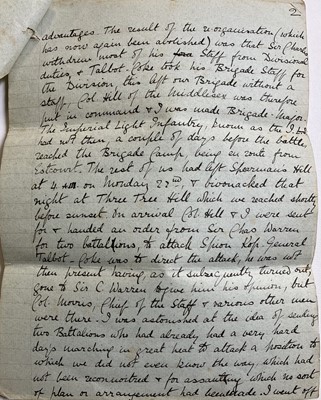 2
advantages. The result of the reorganisation (which
has now again been abolished) was that Sir Charles
withdrew most of his Staff from Divisional
duties, & Talbot Coke took his Brigade Staff for
the Division, this left our Brigade without a
staff, Col. Hill of the Middlesex was therefore
put in command & I was made Brigade-Major.
The Imperial Light Infantry, known as the I.L.I.
had not then, a couple of days before the battle,
reached the Brigade Camp, being en route from
Estcourt. The rest of us had left Spearmans Hill
at 4 on Monday & bivouacked that
night at Three Tree Hill which we reached shortly
before sunset. On arrival Col. Hill & I were sent
for & handed an order from Sir Chas Warren
for two battalions, to attack Spion Kop. General
Talbot-Coke was to direct the attack, he was not
then present having, as it subsequently turned out,
gone to Sir C. Warren to give him his opinion, but
Col. Morris, Chief of the Staff & various other men
were there. I was astonished at the idea of sending
two Battalions who had already had a very hard
days marching in great heat to attack a position to
which we did not even know the way, which had
not been reconnoitred & for assaulting which no sort
of plan or arrangement had been made. I went off